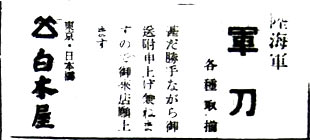 陸海軍
軍刀
各種取揃
甚だ勝手ながら御
送附申上げ兼ねま
すので御来店願上
ます
東京・日本橋
白木屋